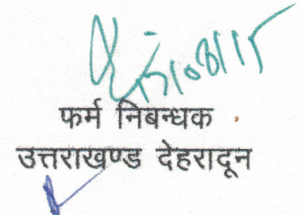 फर्म निबन्धक
उत्तराखण्ड देहरादून